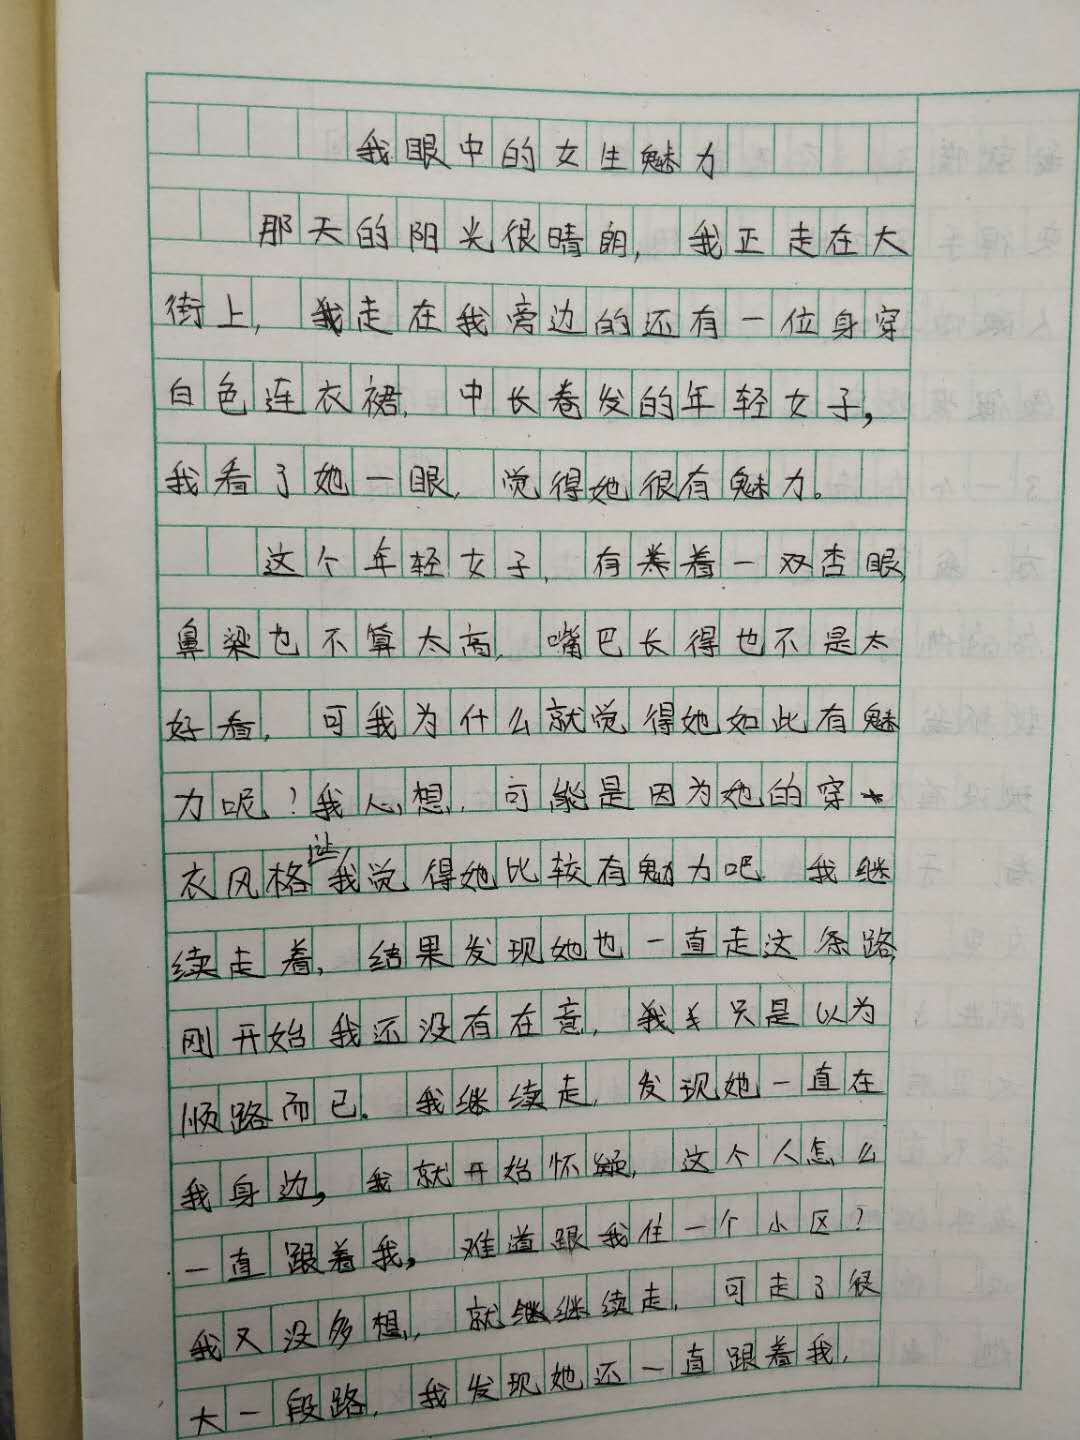 我眼中的女生魅力
那天的阳光很晴朗，我正走在大
街上，我走在我旁边的还有一位身穿
白色连衣裙，中长卷发的年轻女子，
我看了她一眼，觉得她很有魅力。
这个年轻女子，有着一双杏眼，
鼻梁也不算太高，嘴巴长得也不是太
好看，可我为什么就觉得她如此有魅
力呢？我心想，可能是因为她的穿
衣风格让我觉得她比较有魅力吧 我继
续走着，结果发现她也一直走这条路，
刚开始我还没有在意，我只是以为
顺路而已。我继续走，发现她一直在
我身边，我就开始怀疑，这个人怎么
一直跟着我，难道跟我住一个小区？
我又没多想，就继续走，可走了很
大一段路，我发现她还一直跟着我，